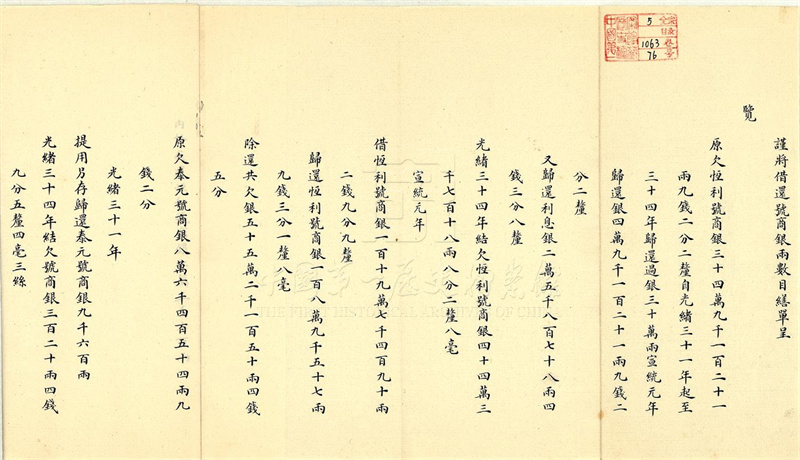 謹將借還號商銀兩數目繕單呈
覽
原欠恆利號商銀三十四萬九千一百二十一
兩九錢二分二釐自光緒三十一年起至
三十四年歸還過銀三十萬兩宣統元年
歸還銀四萬九千一百二十一兩九錢二
分二釐
又歸還利息銀二萬五千八百七十八兩四
錢三分八釐
光緒三十四年結欠恆利號商銀四十四萬三
千七百十八兩八分二釐八毫
宣統元年
借恆利號商銀一百十九萬七千四百九十兩
二錢九分九釐
歸還恆利號商銀一百八萬九千五十七兩
九錢三分一釐八毫
除還共欠銀五十五萬二千一百五十兩四錢
五分
原欠泰元號商銀八萬六千四百五十四兩九
錢二分
光緒三十一年
提用另存歸還泰元號商銀九千六百兩
光緒三十四年結欠號商銀三百二十兩四錢
九分五釐四毫三絲
5
1063
76
中國第一歷史檔案館
THE FIRST HISTORICAL ARCHIVES OF CHINA